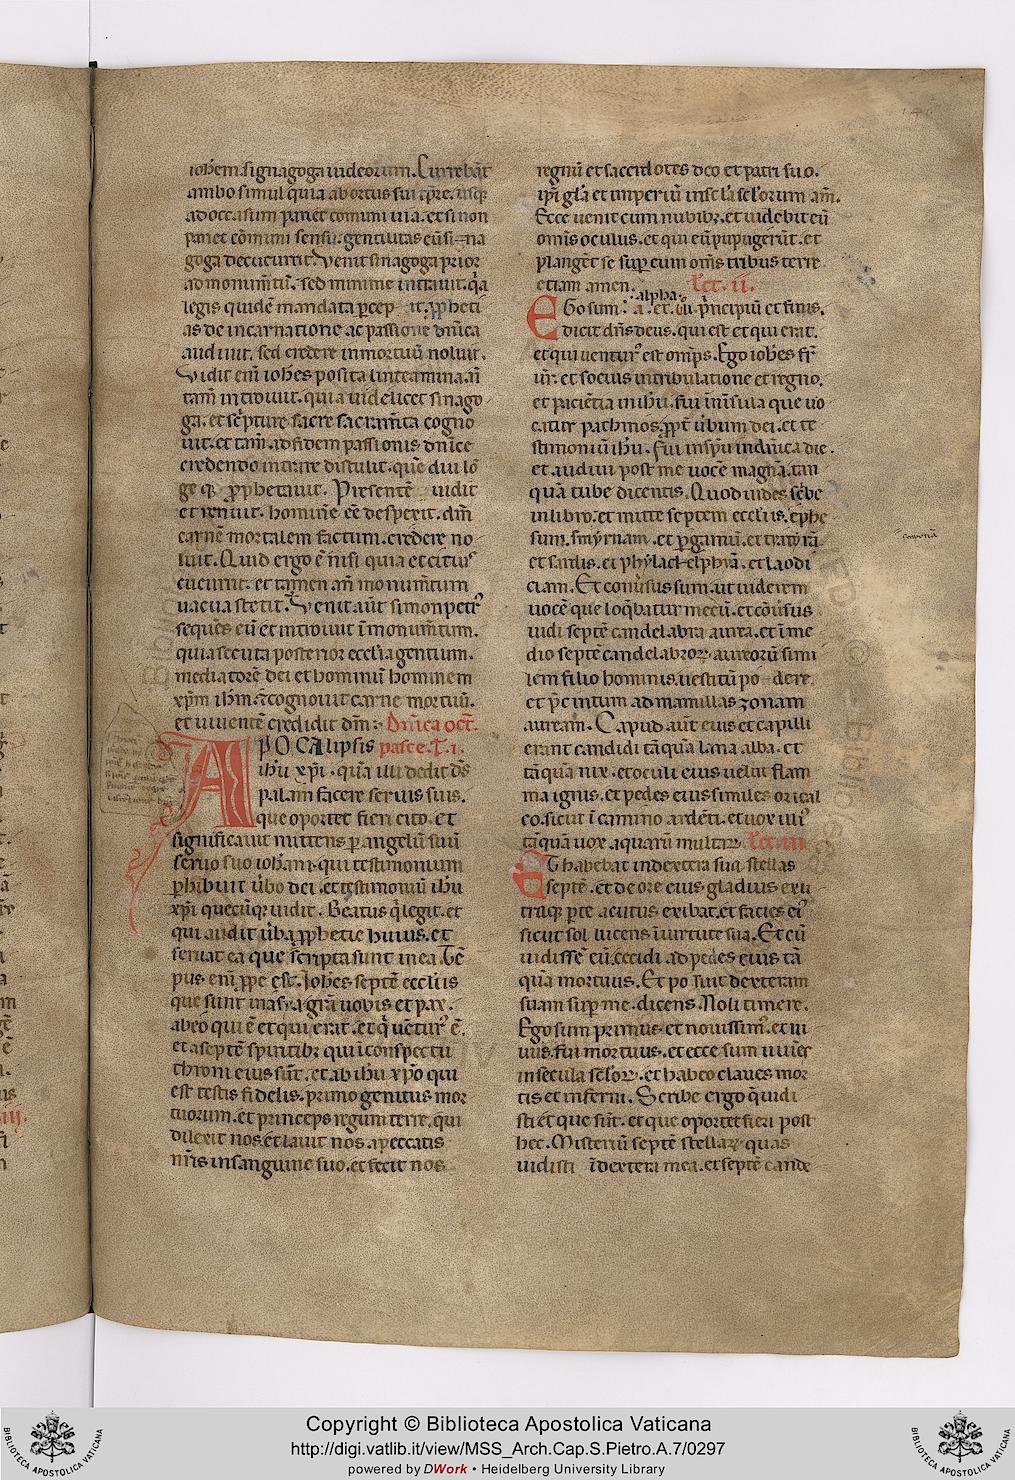 ioħem. signagoga iudeorum. Currebāt
ambo simul quia ab ortus sui tp̄re. usq;
ad occasum pari et comuni uia. et si non
pari et cōmuni sensu. gentilitas cū sina
goga decucurrit. Venit sinagoga prior
ad monum̄tū. sed minime intrauit. q̄a
legis quidē mandata percep it. ꝓpheti
as de incarnatione ac passione dn̄ica
audiuit. sed credere in mortuū noluit.
Vidit eni̅ ioh̅es posita linteamina. n̄
tam̄ introiuit. quia uidelicet sinago
ga. et sc̄pture sacre sacram̄ta cogno
uit. et tam̄. ad fidem passionis dn̄ice
credendo intrare distulit. quē diu lō
ge q; ꝓphetauit. Presentē uidit
et renuit. hominē eē despexit. dm̄
carnē mortalem factum. credere no
luit. Quid ergo ē nisi quia et citius
cucurrit. et tamen an̄ monum̄tum
uacua stetit. Venit aūt simon petrꝰ
sequēs eū et introiuit ī monum̄tum.
quia secuta posterior ecclīa gentium.
mediatorē dei et hominū hominem
xp̄m ih̄m. et cognouit carne mortuū.
et uiuentē credidit dm̄. Dn̄ica oct.
APOCAlipsis pasce. L. i.
ih̄u xp̄i. quā illi dedit dš
palam facere seruis suis.
que oportet fieri cito. et
significauit mittens p angelū suū
seruo suo ioh̅ani. qui testimonium
ꝑhibuit u̅bo dei. et testimoniū ih̄u
xp̄i quecūq; uidit. Beatus q̄ legit. et
qui audit u̅ba ꝓphetie huius. et
seruat ea que sc̄ripta sunt in ea. Tē
pus enī ꝓpe est. Ioh̅es septē eccl̄iis
que sunt in asya. gr̄a uobis et pax.
ab eo qui ē et qui erat. et q̄ uēturꝰ ē.
et a septē spiritibꝫ qui ī conspectu
throni eius sūt. et ab ih̄u xp̄o qui
est testis fidelis. primogenitus mor
tuorum. et princeps regum terre. qui
dilexit nos. et lauit nos. a peccatis
nr̄is in sanguine suo. et fecit nos
regnū et sacerdotes deo et patri suo.
ip̄i gl̄a et imperiū in sec̄la sel̄orum am̄.
Ecce uenit cum nubibꝫ. et uidebit eū
omīs oculus. et qui eū pupugerūt. et
plangēt se suꝑ eum om̄s tribus terre
etiam amen. Lect. ii.
alpha
Ego sum. a. et. ω. p̄ncipiū et finis.
dicit dn̄s deus. qui est et qui erat.
et qui uenturꝰ est omīps. Ego ioh̅es fr̄
ur̄. et socius in tribulatione et regno.
et paciētia in ih̄u. fui in īsula que uo
catur pathmos. ꝓpt̄ u̅bum dei. et te
stimoniū ih̄u. Fui in sp̄u in dn̄ica die.
et audiui post me uocē magnā. tan
quā tube dicentis. Quod uides sc̄be
in libro. et mitte septem eccl̄iis. ephe
sum. smyrnam. et pergamū. et tyatyrā
et sardis. et phyladelphyā. et laodi
ciam. Et conu̅sus sum. ut uiderem
uocē que loq̄batur mecū. et cōu̅sus
uidi septē candelabra aurea. et ī me
dio septē candelabroꝝ aureorū simi
lem filio hominis. uestitū po dere.
et p̄cintum ad mamillas zonam
auream. Capud aūt eius et capilli
erant candidi tāquā lana alba. et
tāquā nix. et oculi eius uelut flam
ma ignis. et pedes eius similes orical
co. sicut ī camino ardēti. et uox illiꝰ
tāquā uox aquarū multaꝝ. Lect. iii
Et habebat in dextera sua stellas
septē. et de ore eius gladius ex u
traq; ꝑte acutus exibat. et facies eiꝰ
sicut sol lucens ī uirtute sua. Et cū
uidissē eū. cecidi ad pedes eius tā
quā mortuus. Et po suit dexteram
suam suꝑ me. dicens. Noli timere.
Ego sum primus. et nouissimꝰ. et ui
uus. fui mortuus. et ecce sum uiuēs
in secula sel̄oꝝ. et habeo claues mor
tis et inferni. Scribe ergo q̄ uidi
sti et que sūt. et que oportet fieri post
hec. Misteriū septē stellaꝝ quas
uidisti ī dextera mea. et septē cande
Copyright © Biblioteca Apostolica Vaticana
http://digi.vatlib.it/view/MSS_Arch.Cap.S.Pietro.A.7/0297
powered by DWork • Heidelberg University Library
BIBLIOTECA APOSTOLICA VATICANA
BIBLIOTECA APOSTOLICA VATICANA